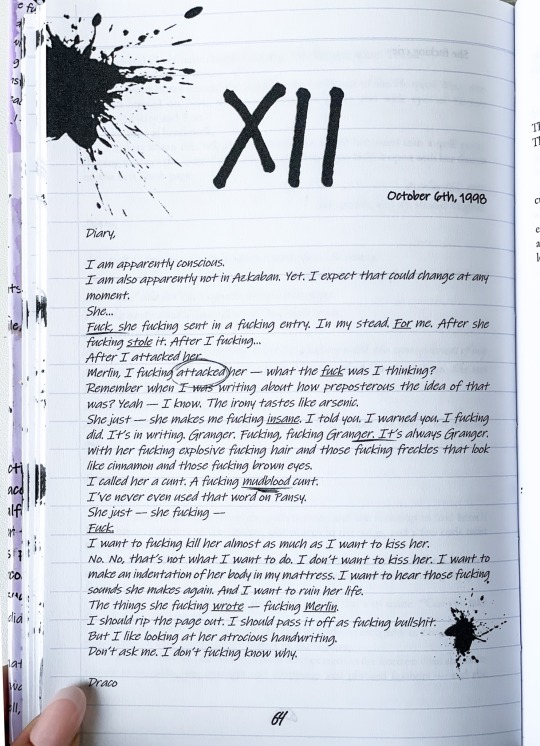 XII
October 6th, 1998
Diary,
I am apparently conscious.
I am also apparently not in Azkaban. Yet. I expect that could change at any
moment.
She...
Fuck, she fucking sent in a fucking entry. In my stead. For me. After she
fucking stole it. After I fucking...
After I attacked her.
Merlin, I fucking attacked her — what the fuck was I thinking?
Remember when I was writing about how preposterous the idea of that
was? Yeah — I know. The irony tastes like arsenic.
She just — she makes me fucking insane. I told you. I warned you. I fucking
did. It's in writing. Granger. Fucking, fucking Granger. It's always Granger.
With her fucking explosive fucking hair and those fucking freckles that look
like cinnamon and those fucking brown eyes.
I called her a cunt. A fucking mudblood cunt.
I've never even used that word on Pansy.
She just — she fucking —
Fuck.
I want to fucking kill her almost as much as I want to kiss her.
No. No, that's not what I want to do. I don't want to kiss her. I want to
make an indentation of her body in my mattress. I want to hear those fucking
sounds she makes again. And I want to ruin her life.
The things she fucking wrote — fucking Merlin.
I should rip the page out. I should pass it off as fucking bullshit.
But I like looking at her atrocious handwriting.
Don't ask me. I don't fucking know why.
Draco
64